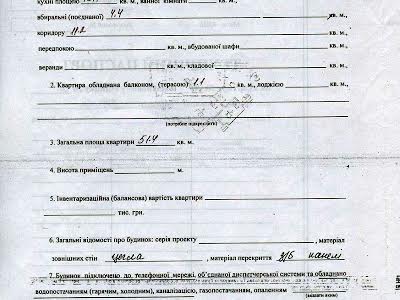 кухні площею кв. м., ванної кімнати кв. м.,
вбиральні (поєднаної) 4.4 кв. м.,
коридору 11.2 кв. м.,
передпокою кв. м., вбудованої шафи кв. м.,
веранди кв. м., кладової кв. м.,
2. Квартира обладнана балконом, (терасою) 1.1 кв. м., лоджією кв. м.,
(потрібне підкреслити)
3. Загальна площа квартири 51.4 кв. м.
4. Висота приміщень м.
5. Інвентаризаційна (балансова) вартість квартири
тис. грн.
6. Загальні відомості про будинок: серія проекту , матеріал
зовнішніх стін цегла , матеріал перекриття з/б панелі
7. Будинок підключено до телефонної мережі, об'єднаної диспетчерської системи та обладнано
водопостачанням (гарячим, холодним), каналізацією, газопостачанням, опаленням
(вказати яким)